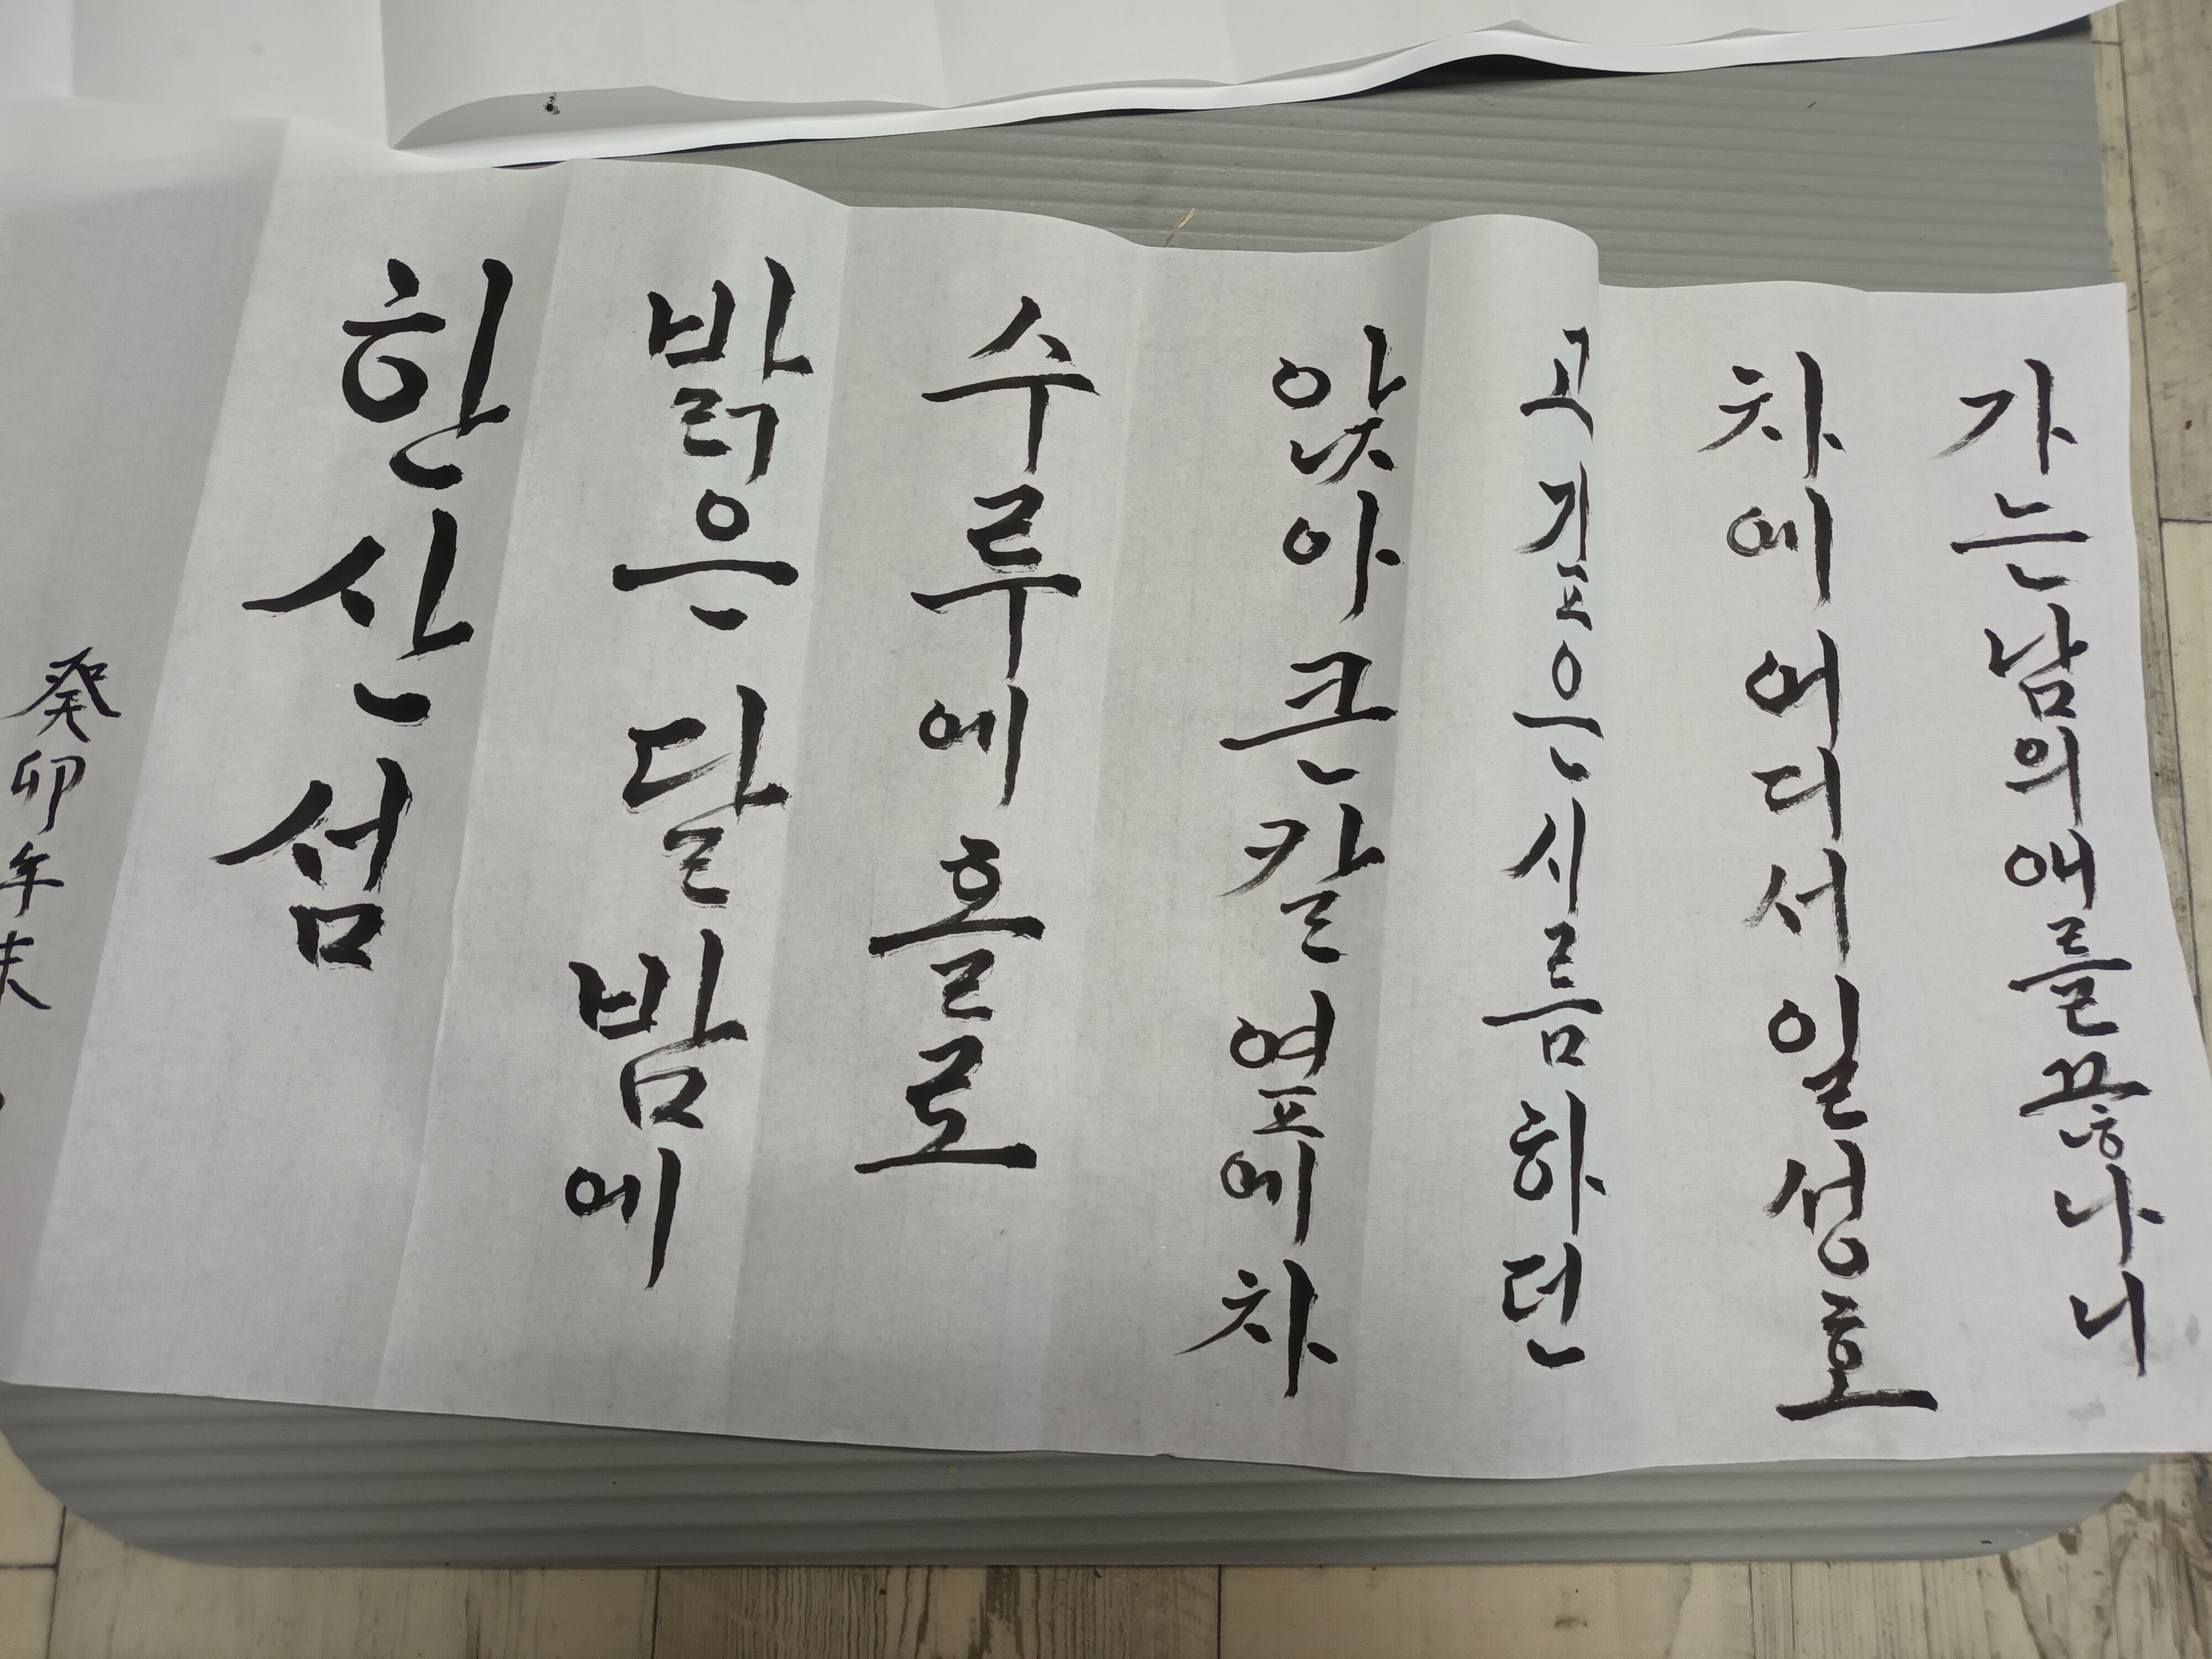 한산섬
밝은 달 밤에
수루에 홀로
앉아 큰 칼 옆에 차
고 깊은 시름 하던
차에 어디서 일성호
가는 남의 애를 끊나니
癸卯年